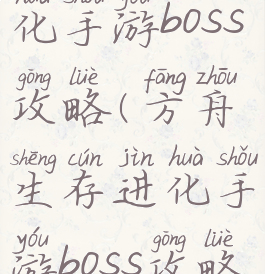 huà shǒu yóu
化手游boss
gōng lüè fāng zhōu
攻略(方舟
shēng cún jìn huà shǒu
生存进化手
yóu gōng lüè
游boss攻略